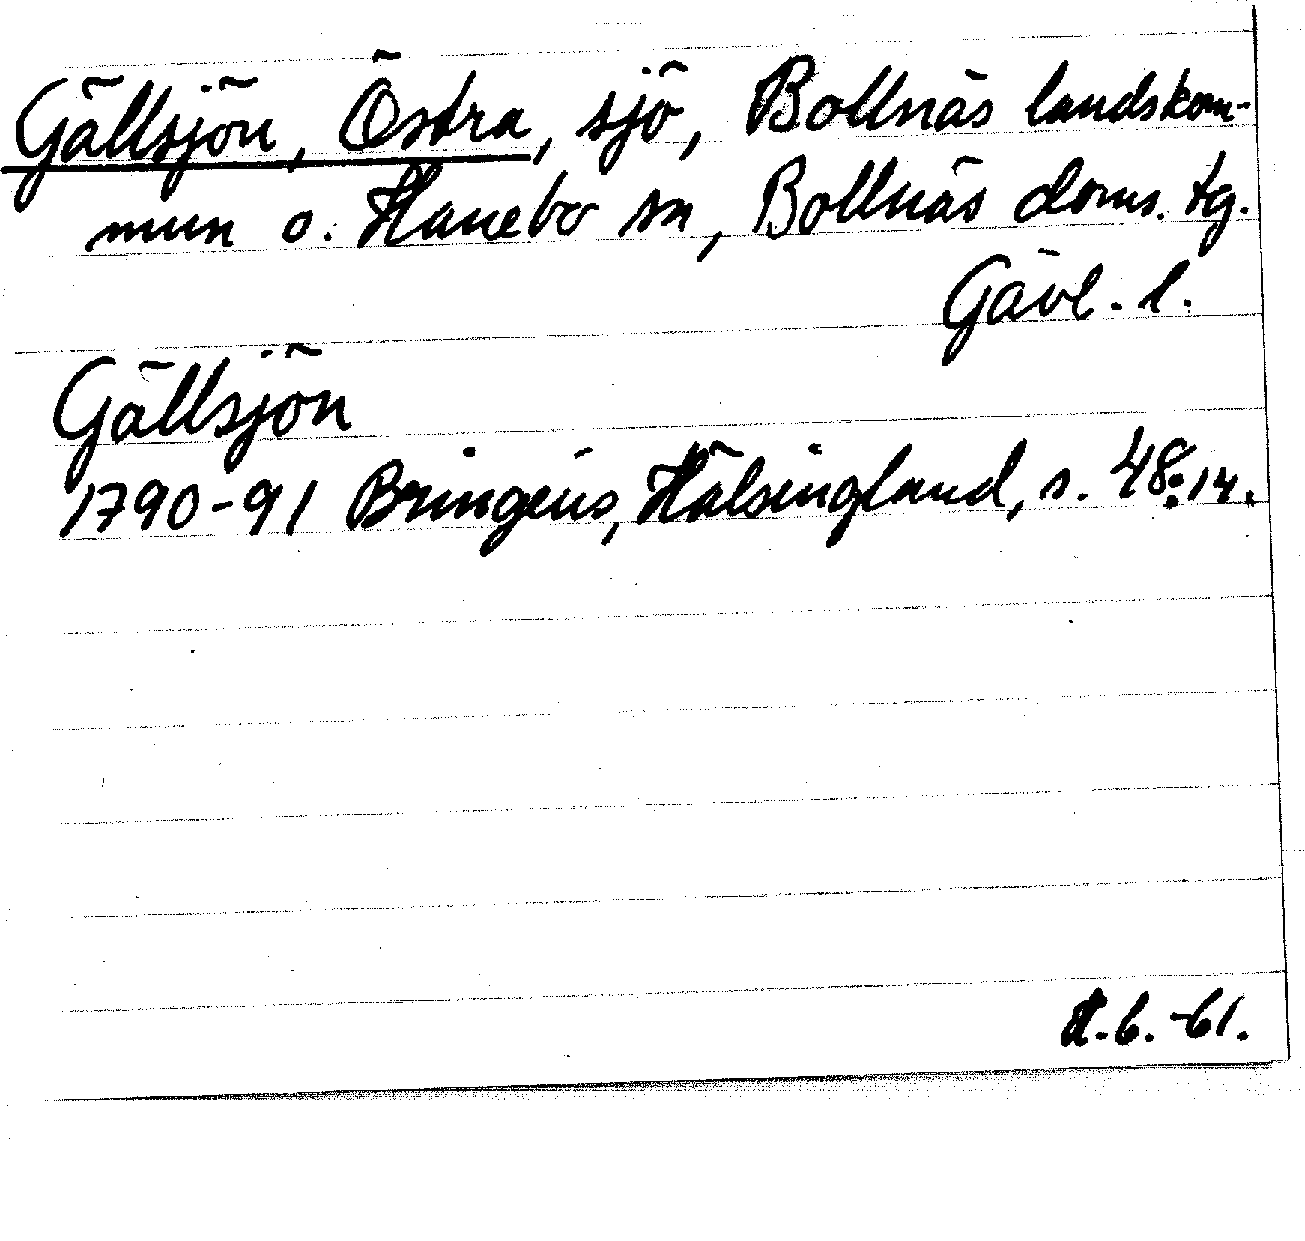 Gällsjön, Östra, sjö, Bollnäs landskom-
mun o. Hanebo sn, Bollnäs doms. tg.
Gävl. l.
Gällsjön
1790-91 Bringéus, Hälsingland, s. 48:14.
6.-61.